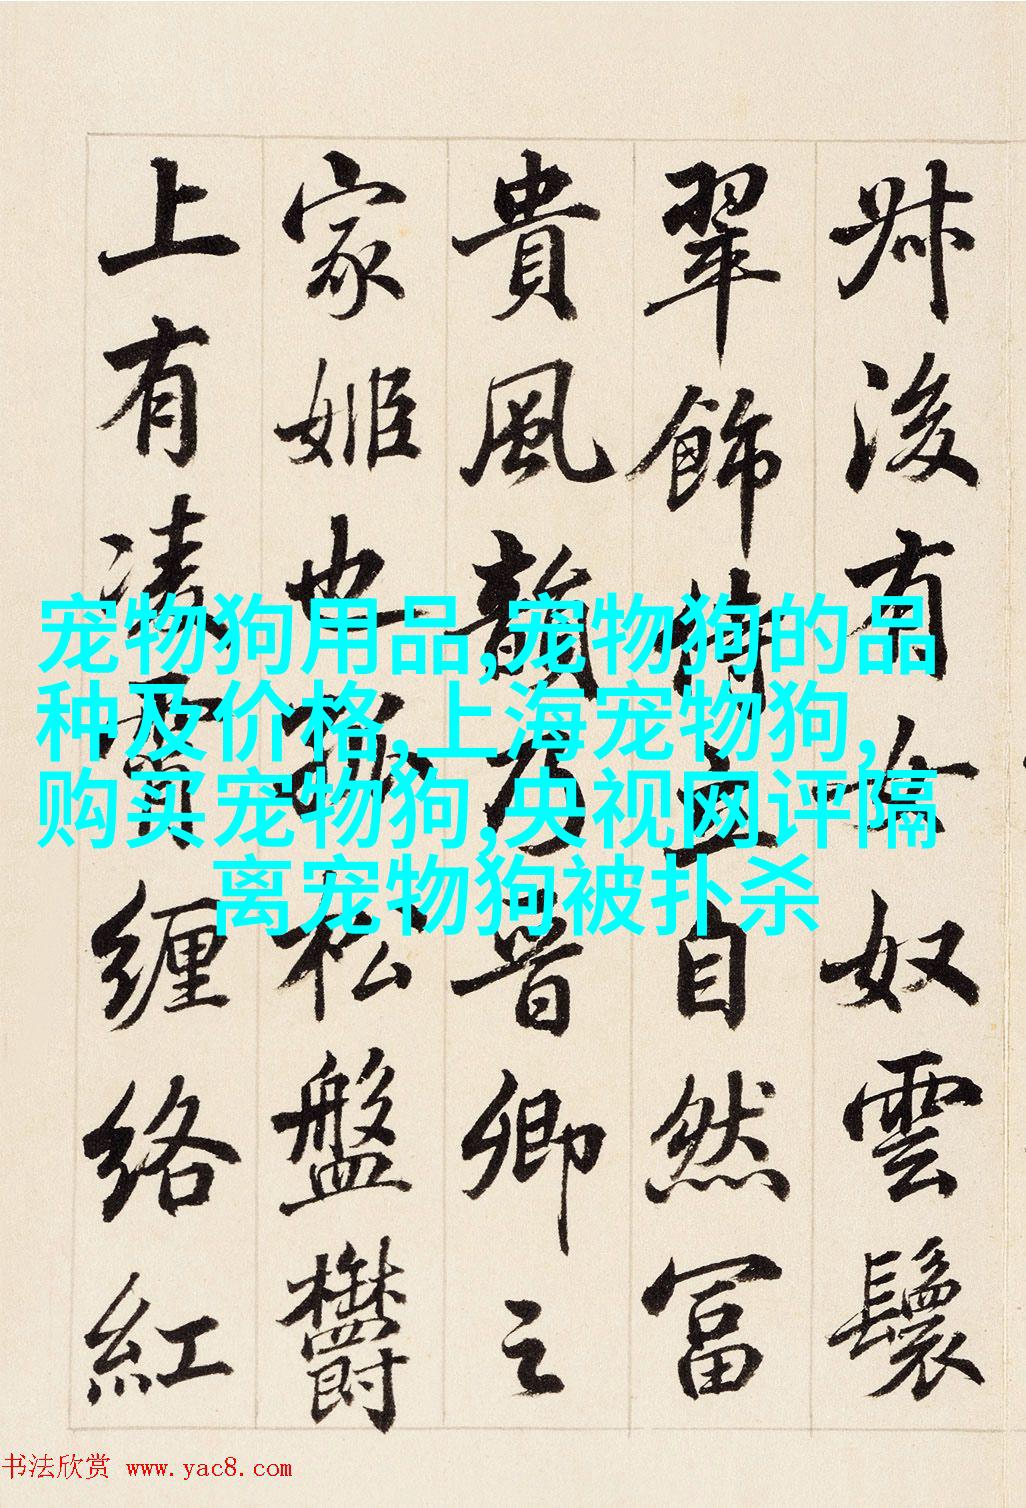 叔後有女奴雲鬟
翠飾侍立自然富
貴風韻乃晉卿之
家姬也孤松盤鬱
上有凌霄纏絡紅
宠物狗用品,宠物狗的品
种及价格,上海宠物狗,
购买宠物狗,央视网评隔
离宠物狗被扑杀
书法欣赏 www.yac8.com